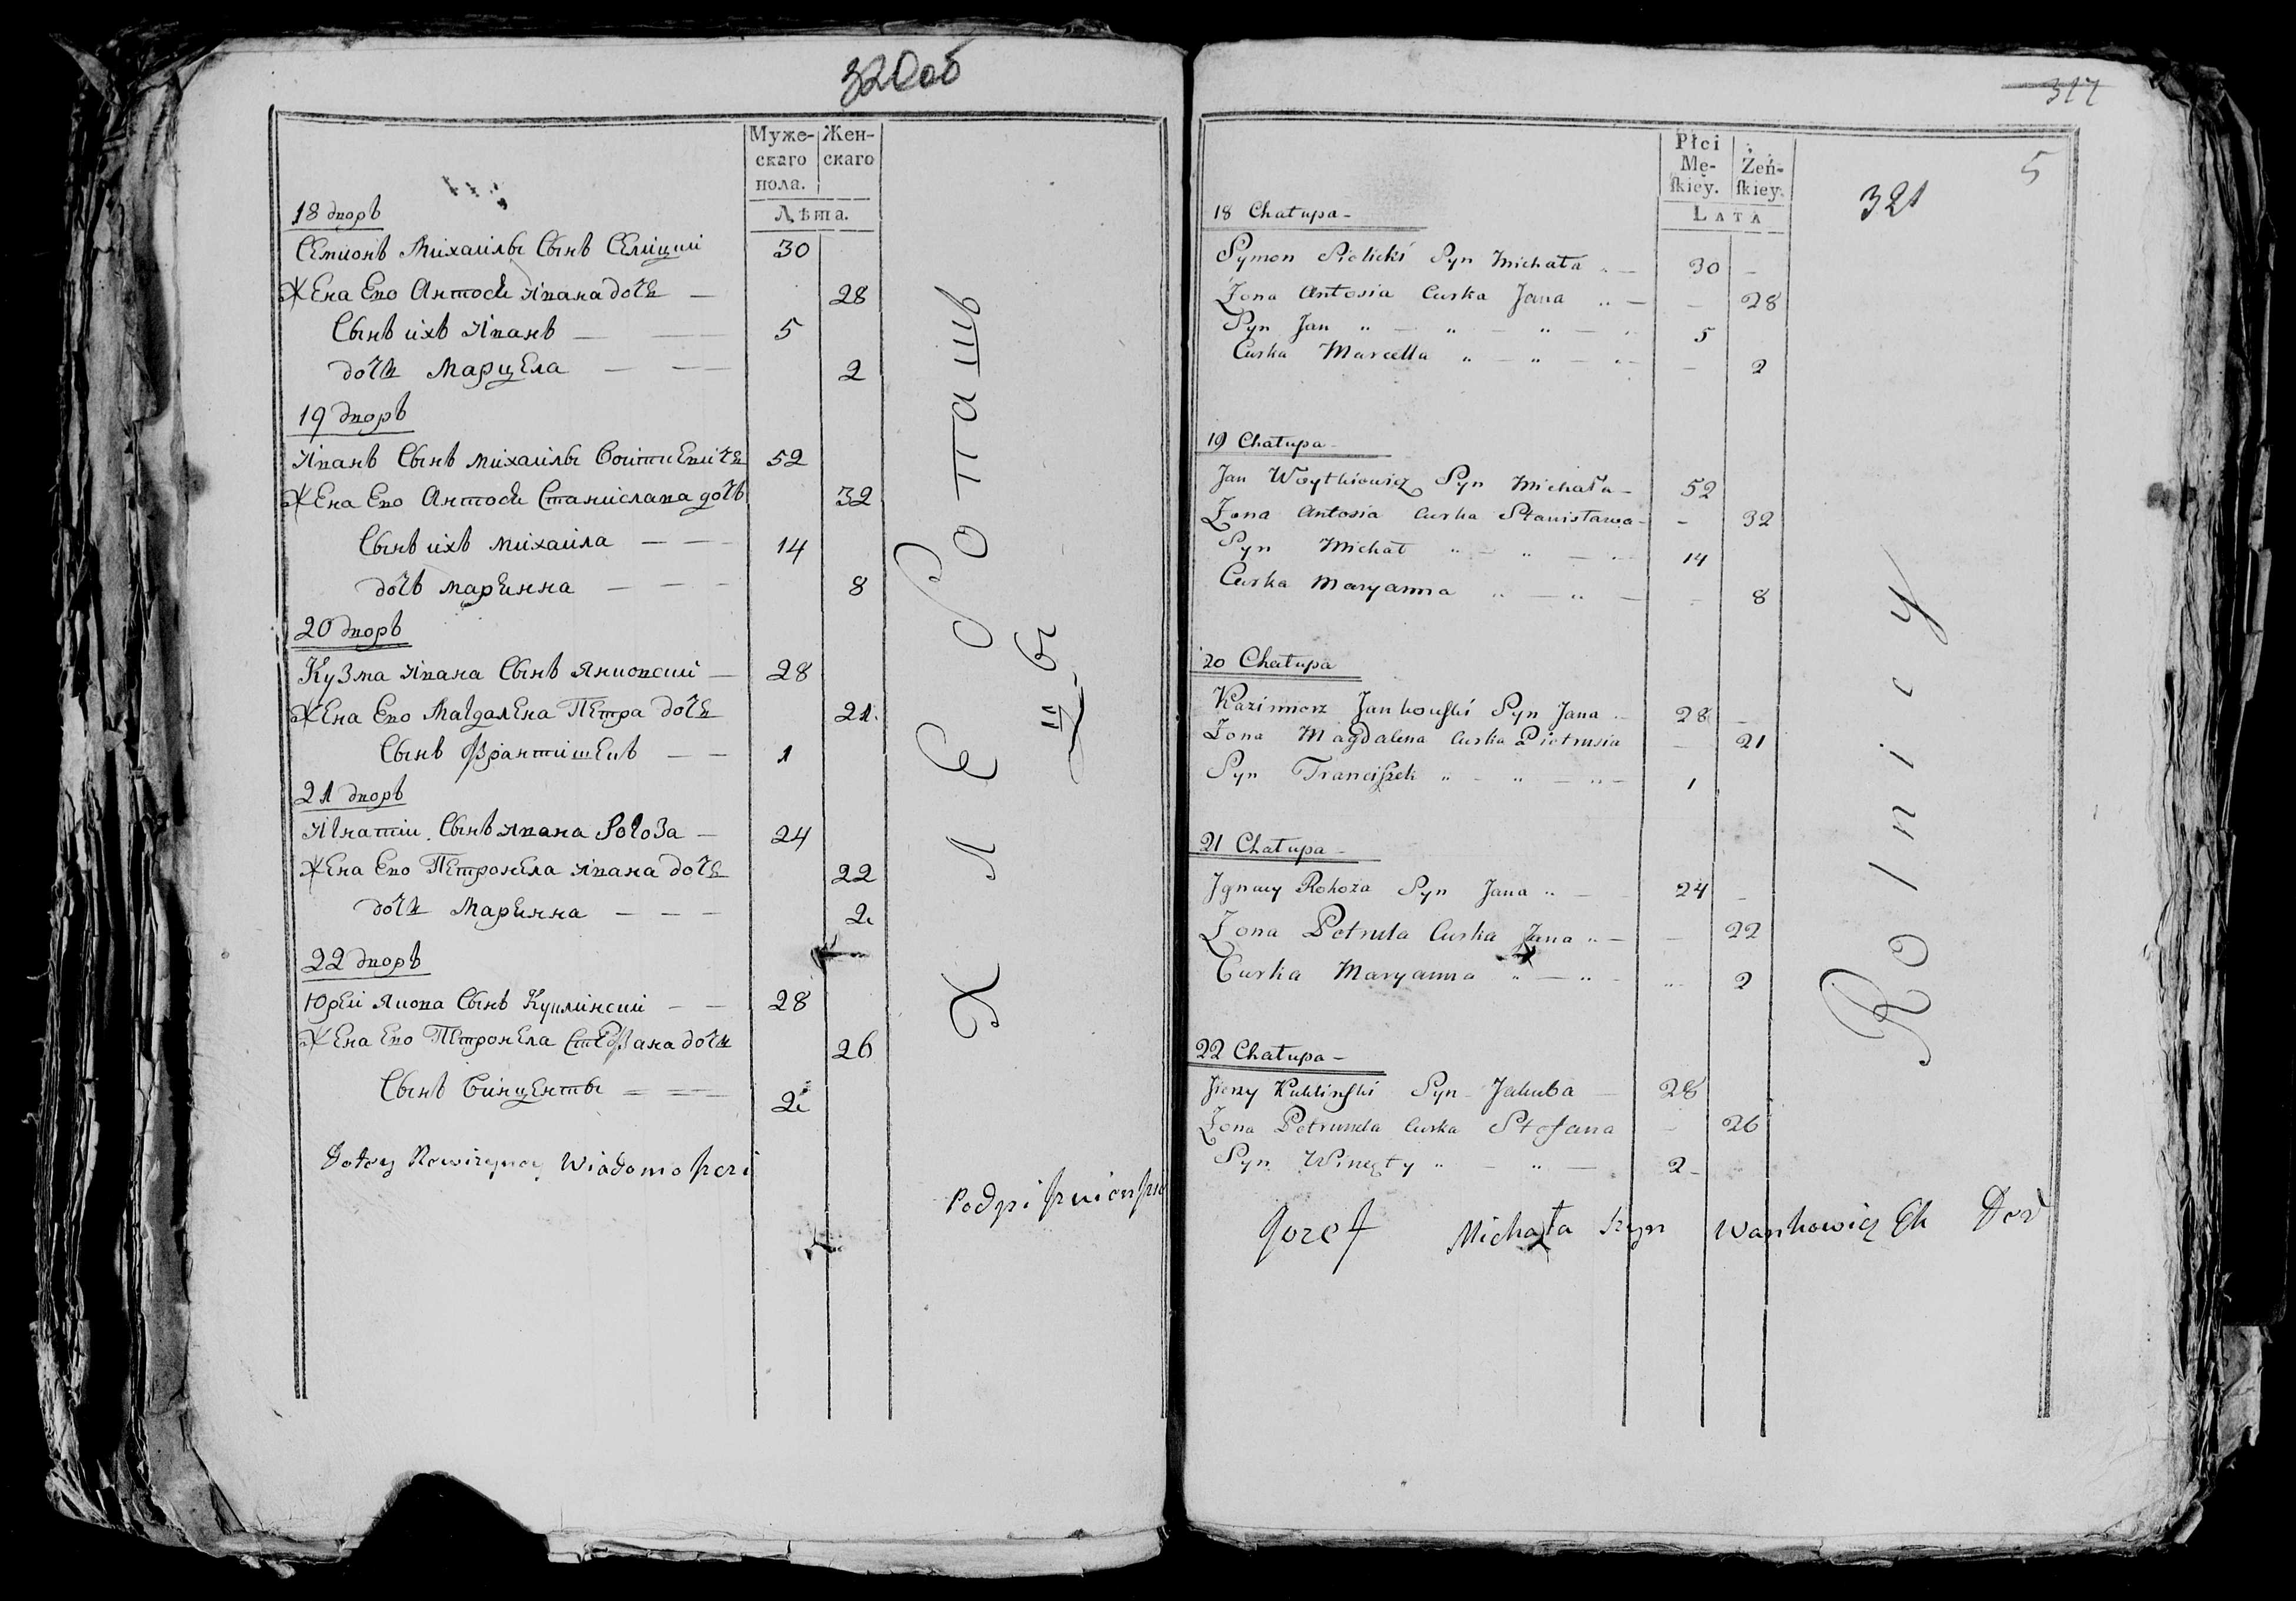 320об
Муже-
скаго
пола.
Жен-
скаго
Лѣта.
18 дворъ
Семионъ Михаилы Сынъ Селицкий 30
Жена Ево Антося Ивана дочь — 28
Сынъ ихъ Иванъ — 5
дочь Марцела — — 2
19 дворъ
Иванъ Сынъ михаилы Воиткевичь 52
Жена Ево Антося Станислава дочь 32
Сынъ ихъ михаила — — 14
дочь марянна — — — 8
20 дворъ
Кузма Ивана Сынъ Янковский — 28
Жена Ево Магдалена Петра дочь 21.
Сынъ Франтишекъ — — 1
21 дворъ
Игнатий Сынъ Ивана Рогоза — 24
Жена Ево Петронела Ивана дочь 22
дочь Марянна — — — 2
22 дворъ
Юрей Якова Сынъ Куклинский — — 28
Жена Ево Петронела Стефана дочь 26
Сынъ Винценты 2
Хлебопашцы
Do tey Rewizyney Wiadomosczi
Podpisuion sie
317
5
321
Płci
Mę-
ſkiey.
Żeń-
ſkiey.
LATA
18 Chałupa -
Symon Sielicki Syn Michała „ — 30 —
Żona Antosia Curka Jana „ — — 28
Syn Jan „ — „ — „ — „ 5
Curka Marcella „ — „ — „ - — 2
19 Chałupa -
Jan Woytkiewicz Syn Michała - 52
Żona Antosia Curka Stanisława - - 32
Syn Michał „ — „ — „ - 14
Curka Maryanna „ — „ — - 8
20 Chałupa
Kazimierz Jankowſki Syn Jana „ 28 —
Żona Magdalena Curka Pietrusia — 21
Syn Franciſzek „ - „ — „ - 1
21 Chałupa -
Jgnacy Rohoza Syn Jana „ — 24 -
Żona Petrula Curka Jana „ — — 22
Curka Maryanna „ — „ - „ 2
22 Chałupa -
Jierzy Kuklinſki Syn Jakuba — 28
Żona Petrunela Curka Stefana - 26
Syn Wincęty „ - „ — 2 -
Rolnicy
Jozef Michała Syn Wankowicz